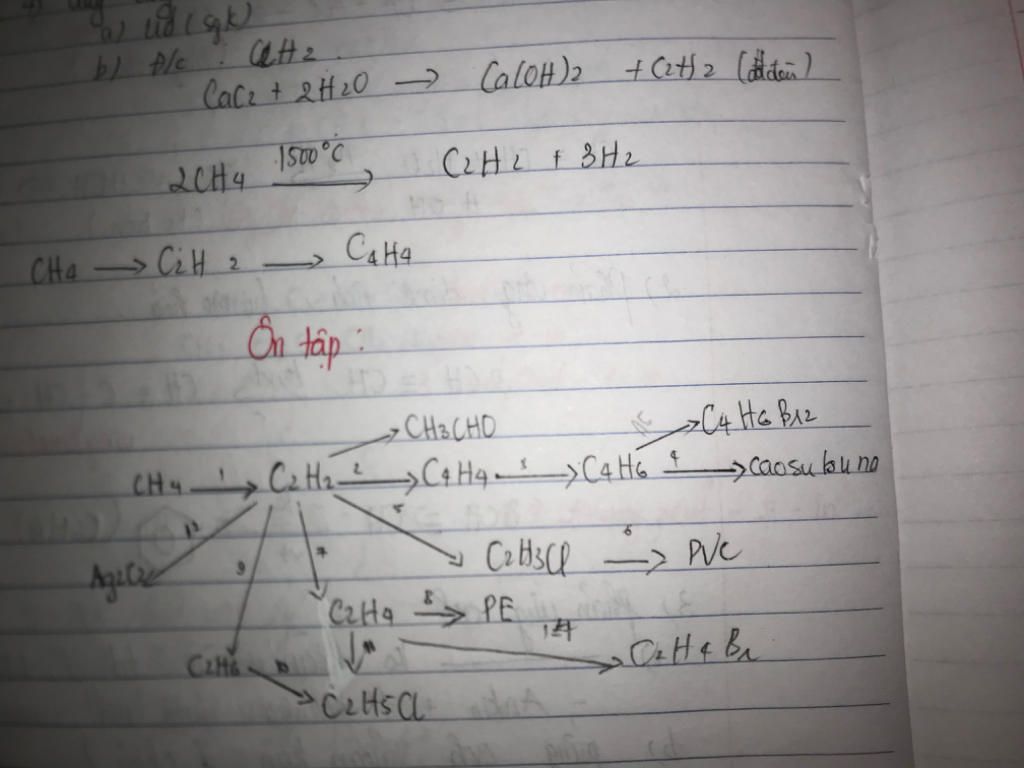 a) ưd (sgk)
b) đ/c : C2H2.
CaC2 + 2H2O → Ca(OH)2 + C2H2 (đất đèn)
2CH4 1500°C → C2H2 + 3H2
CH4 → C2H2 → C4H4
Ôn tập :
CH3CHO C4H6Br2
CH4 1 → C2H2 2 → C4H4 3 → C4H6 4 → caosu buna
12 5
Ag2C2 9 7 C2H3Cl 6 → PVC
C2H4 8 → PE
C2H6 10 11 C2H4Br
C2H5Cl